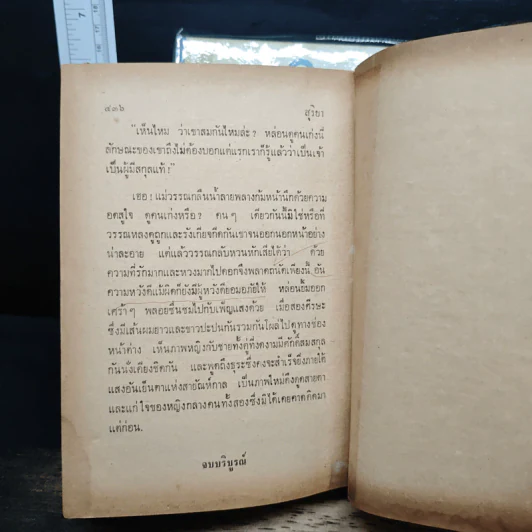 7
๔๓๖
สุริยา
"เห็นไหม ว่าเขาสมกันไหมล่ะ? หล่อนดูคนเก่งนี่
ลักษณะของเขาถึงไม่ต้องบอกแต่แรกเราก็รู้แล้วว่าเป็นเจ้า
เป็นผู้มีสกุลแท้!"
เออ! แม่วรรณกลืนน้ำลายพลางก้มหน้านึกด้วยความ
อดสูใจ ดูคนเก่งหรือ? คนๆ เดียวกันนี้มิใช่หรือที่
วรรณหลงดูถูกและรังเกียจกีดกันเราจนออกนอกหน้าอย่าง
น่าละอาย แต่แล้ววรรณกลับหวนหักเสียได้ว่า ด้วย
ความที่รักมากและหวงมากไปดอกจึงพลาดถนัดเพียงนี้ อัน
ความหวังดีแม้ผิดก็ยังมีผู้หวังดียอมอภัยให้ หล่อนยิ้มออก
เศร้าๆ พลอยชื่นชมไปกับเพ็ญแสงด้วย เมื่อสองศีรษะ
ซึ่งมีเส้นผมยาวและขาวปะปนกันรวมกันโผล่ไปดูทางช่อง
หน้าต่าง เห็นภาพหญิงกับชายทั้งคู่ที่งดงามมีศักดิ์สมสกุล
กันนั่งเคียงชิดกัน และพูดถึงธุระซึ่งคงจะสำเร็จยิ่งภายใต้
แสงอันเย็นตาแห่งสายัณห์กาล เป็นภาพใหม่ดึงดูดสายตา
และแก่ใจของหญิงกลางคนทั้งสองซึ่งมิได้เคยคาดคิดมา
แต่ก่อน.
จบบริบูรณ์